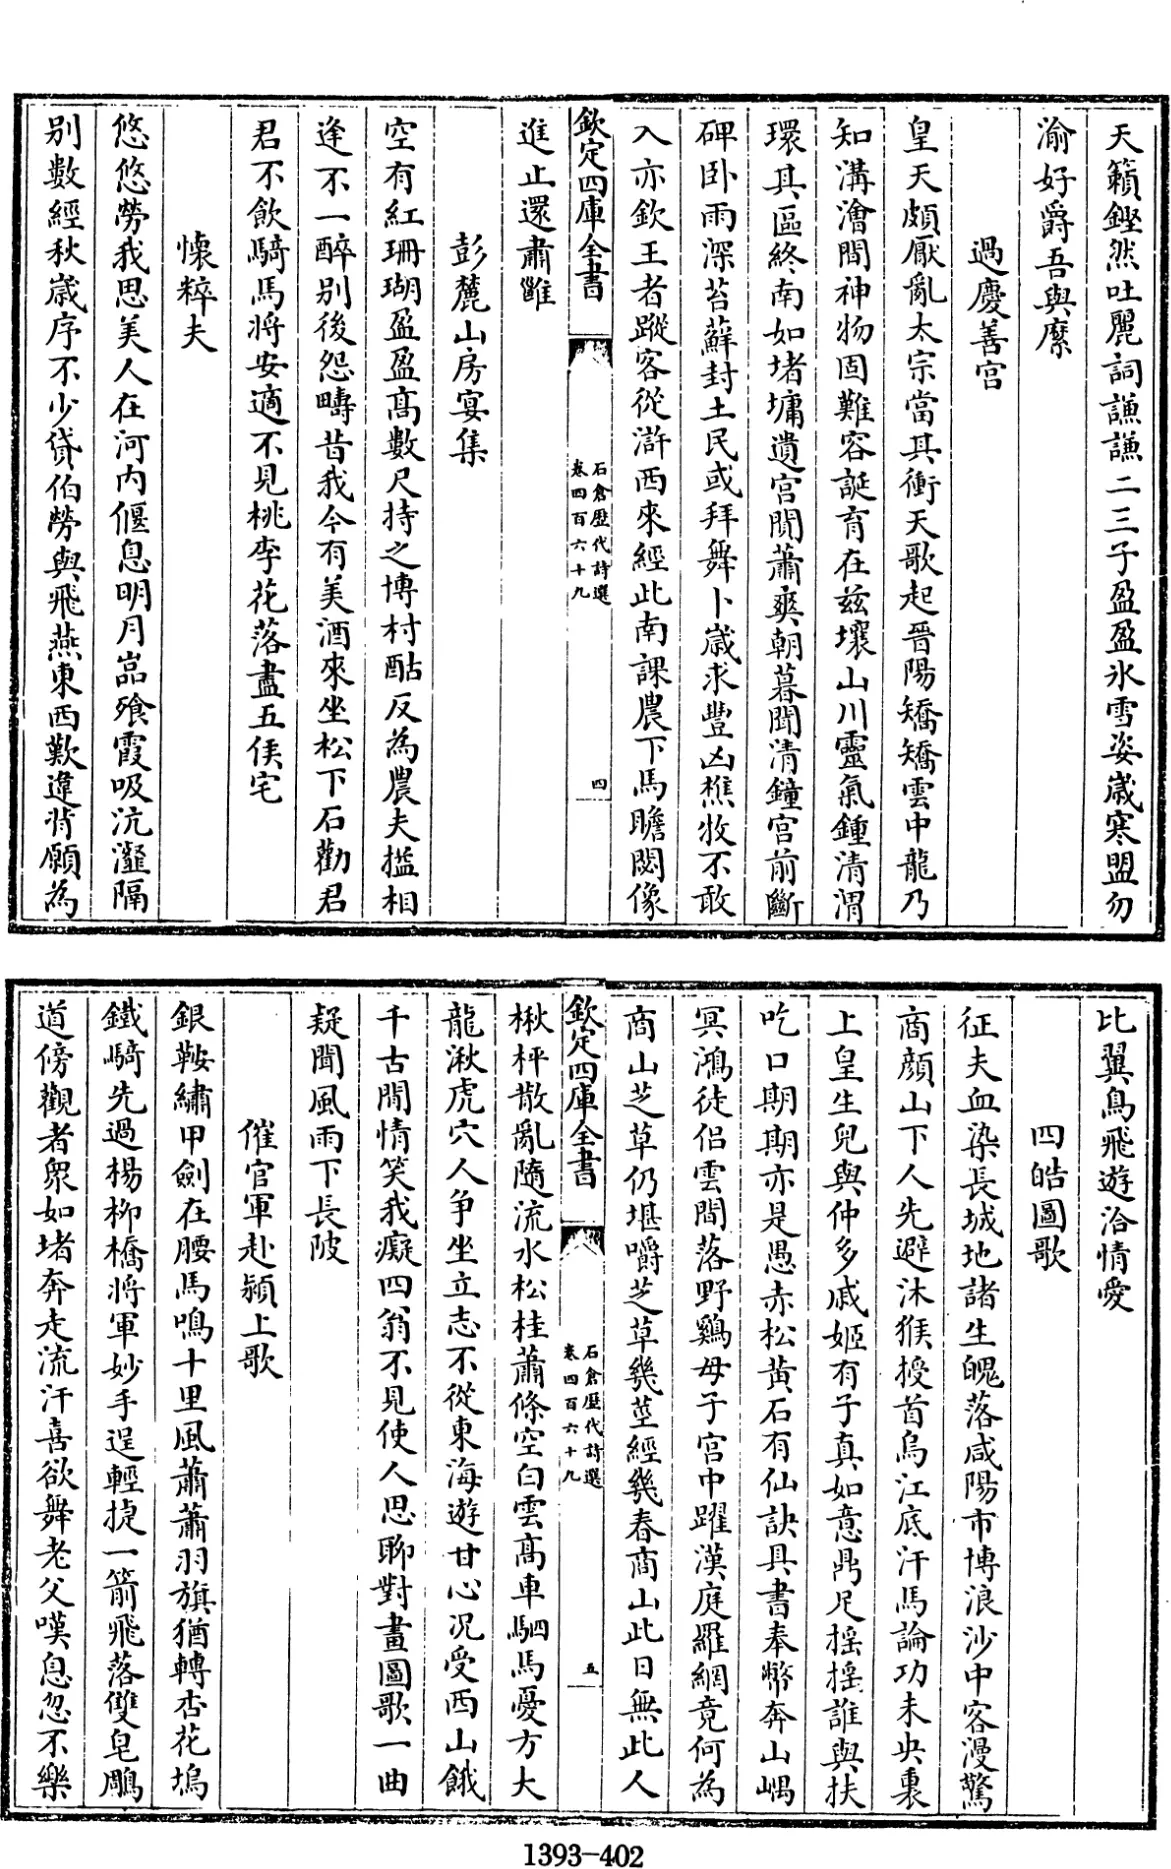 天籟鏗然吐麗詞謙謙二三子盈盈氷雪姿歲寒盟勿
渝好爵吾與縻
過慶善宮
皇天頗厭亂太宗當其衝天歌起晉陽矯矯雲中龍乃
知溝澮間神物固難容誕育在兹壤山川靈氣鍾清渭
環其區終南如堵墉遺宮閴蕭爽朝暮聞清鐘宮前斷
碑卧雨深苔蘚封土民或拜舞卜歲求豐凶樵牧不敢
入亦欽王者蹤客從滸西來經此南課農下馬瞻閟像
進止還肅雝
彭麓山房宴集
空有紅珊瑚盈盈髙數尺持之博村酤反為農夫搤相
逢不一醉别後怨疇昔我今有美酒來坐松下石勸君
君不飲騎馬將安適不見桃李花落盡五侯宅
懐粹夫
悠悠勞我思美人在河内偃息明月嵓飱霞吸沆瀣隔
别數經秋歲序不少貸伯勞與飛燕東西歎違背願為
欽定四庫全書
石倉歴代詩選
卷四百六十九
四
比翼鳥飛遊洽情愛
四皓圖歌
征夫血染長城地諸生魄落咸陽市博浪沙中客漫驚
商顔山下人先避沐猴授首烏江底汗馬論功未央裏
上皇生兒與仲多戚姬有子真如意鼎足揺揺誰與扶
吃口期期亦是愚赤松黄石有仙訣具書奉幣奔山嵎
冥鴻徒侣雲間落野鷄母子宮中躍漢庭羅網竟何為
商山芝草仍堪嚼芝草幾莖經幾春商山此日無此人
楸枰散亂隨流水松桂蕭條空白雲髙車駟馬憂方大
龍湫虎穴人争坐立志不從東海遊甘心况受西山餓
千古閒情笑我癡四翁不見使人思聊對畫圖歌一曲
疑聞風雨下長陂
催官軍赴潁上歌
銀鞍繡甲劍在腰馬鳴十里風蕭蕭羽旗猶轉杏花塢
鐵騎先過楊栁橋將軍妙手逞輕捷一箭飛落雙皂鵰
道傍觀者衆如堵奔走流汗喜欲舞老父嘆息忽不樂
欽定四庫全書
石倉歴代詩選
卷四百六十九
五
1393-402